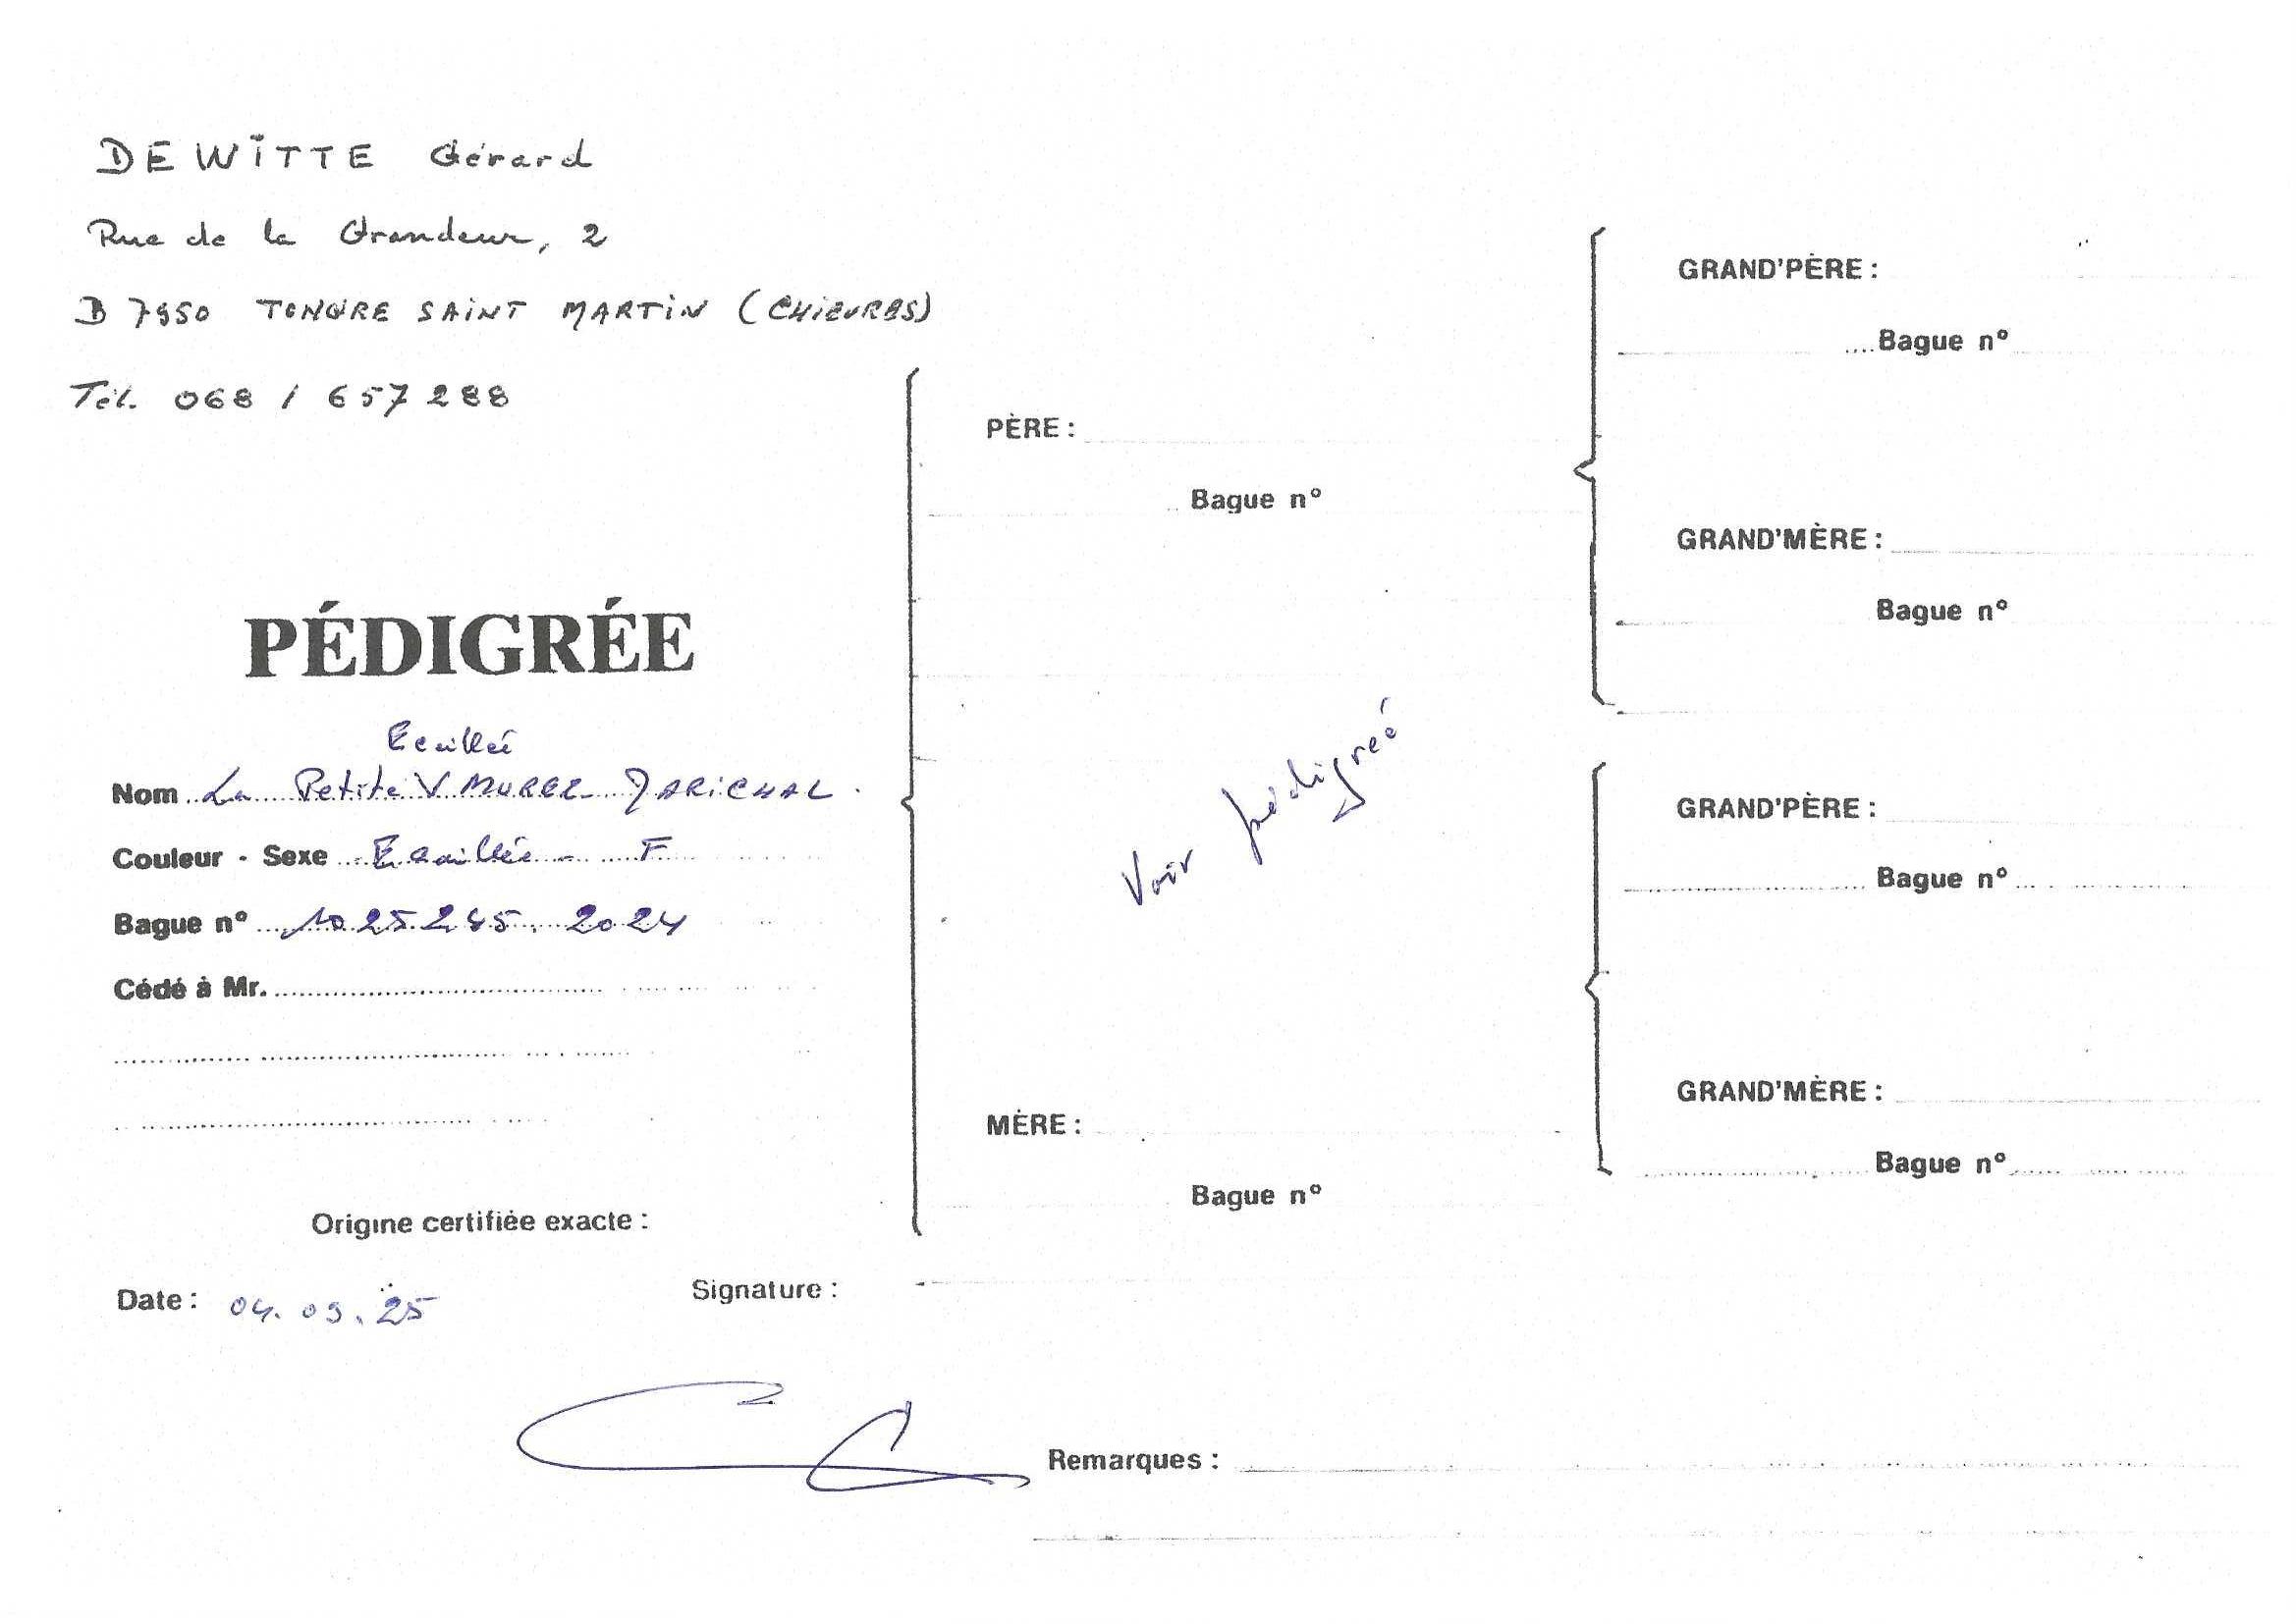 DEWITTE Gérard
Rue de la Grandeur, 2
B 7950 TONGRE SAINT MARTIN (CHIEVRES)
Tél. 068 / 657288
PÉDIGRÉE
Ecaillé
Nom La Petite V MUREZ MARICHAL.
Couleur - Sexe Ecaillée - F
Bague n° 1025245.2024
Cédé à Mr.
Origine certifiée exacte :
Date : 04.09.25
Signature :
PÈRE :
Bague n°
Voir pédigreé
MÈRE :
Bague n°
GRAND'PÈRE :
Bague n°
GRAND'MÈRE :
Bague n°
GRAND'PÈRE :
Bague n°
GRAND'MÈRE :
Bague n°
Remarques :